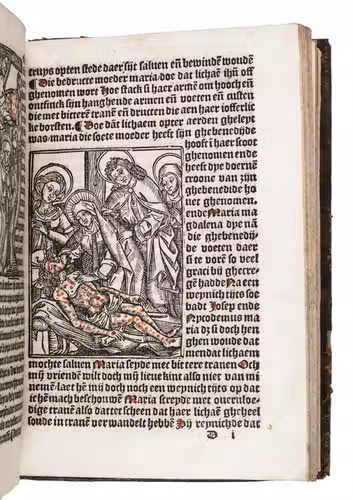 truys opten stede daer sijt saluen eñ bewinden woudẽ
¶ Die bedructe moeder maria / doẽ dat lichaẽ ihũ off
ghenomen wort Hoe stack si haer armẽ om hooch eñ
ontfinck sijn hanghende armen eñ voeten eñ custen
die met bitterẽ tranẽ eñ druckten die aen haer iofferlic
ke borsten. ¶ Doe dat lichaem opter aerden gheleyt
was / maria die soete moeder heeft sijn ghebenedijde
hooft ĩ haer scoot
ghenomen ende
heeft dye doernẽ
croone van zijn
ghebenedide ho
net ghenomen.
ende Maria ma
gdalena dye nã
die ghebenedij-
de voeten daer
si te vorẽ so veel
graci bi ghecre-
gẽ hadde Na een
weynich tijts soe
badt Josep ende
Nycodemus ma
ria dz si doch hen
ghen woude dat
mendat lichaem
mochte saluen Maria seyde met bittere tranen Och
mij vriendẽ wilt doch mij lieue kint also nier van mi
nemẽ laet hẽ mij doch noch een weynich tijts op dat
ic hẽ mach beschouwẽ Maria screyde met oueruloe-
dige tranẽ also dattet scheen dat haer lichaẽ gheheel
soude in tranẽ verwandelt hebbẽ Sij reynichde dat
i